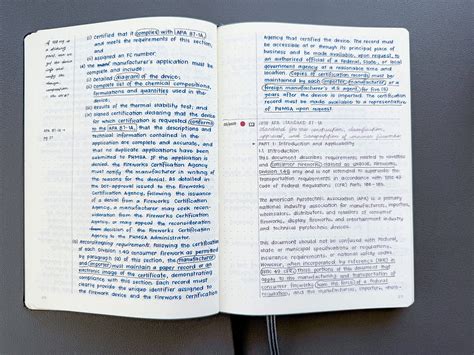 (i) certified that it complies with APA 87-1A,
and meets the requirements of this section;
and
(ii) assigned an FC number;
(4) the manufacturer's application must be
complete and include:
(i) detailed diagram of the device;
(ii) complete list of the chemical compositions,
formulations and quantities used in the
device;
(iii) results of the thermal stability test; and
(iv) signed certification declaring that the device
for which certification is requested conforms
to the APA 87-1A, that the descriptions and
technical information contained in the
application are complete and accurate, and
that no duplicate applications have been
submitted to PHMSA. If the application is
denied, the Fireworks Certification Agency
must notify the manufacturer in writing of
the reasons for the denial. As detailed in
the DOT-approval issued to the Fireworks
Certification Agency, following the issuance
of a denial from a Fireworks Certification
Agency, a manufacturer may seek
reconsideration from the Fireworks Certification
Agency, or may appeal the reconsideration
decision of the Fireworks Certification Agency
to the PHMSA Administrator.
(5) Recordkeeping requirements. Following the certification
of each Division 1.4G consumer firework as permitted
by paragraph (a) of this section, the manufacturer
and importer must maintain a paper record or an
electronic image of the certificate, demonstrating
compliance with this section. Each record must
clearly provide the unique identifier assigned to
the firework device and the Fireworks Certification
Agency that certified the device. The record must
be accessible at or through its principal place of
business and be made available, upon request, to
an authorized official of a Federal, State, or local
government agency at a reasonable time and
location. Copies of certification records must be
maintained by each importer, manufacturer, or a
foreign manufacturer's U.S. agent, for five (5)
years after the device is imported. The certification
record must be made available to a representative
of PHMSA upon request.
APA STANDARD 87-1A
PART 1: Introduction and Applicability
1.1 Introduction
This document describes requirements related to
consumer fireworks
Division 1.4G may and is not intended to supersede the
transportation requirements in accordance with title 49
Code of Federal Regulations (CFR) Parts 100-185.
The American Pyrotechnic Association (APA) is a primary
national industry association for manufacturers, importers,
wholesalers, distributors, and retailers of consumer
fireworks, display fireworks, and entertainment industry
and technical pyrotechnic devices.
This document should not be confused with federal,
state or municipal specifications or regulations,
insurance requirements, or national safety codes.
However, when incorporated by reference (IBR) in
title 49 CFR, those portions of this document that
apply to the manufacturing and transportation of
consumer fireworks have the force of a federal
regulation, and the manufacturer, importer,